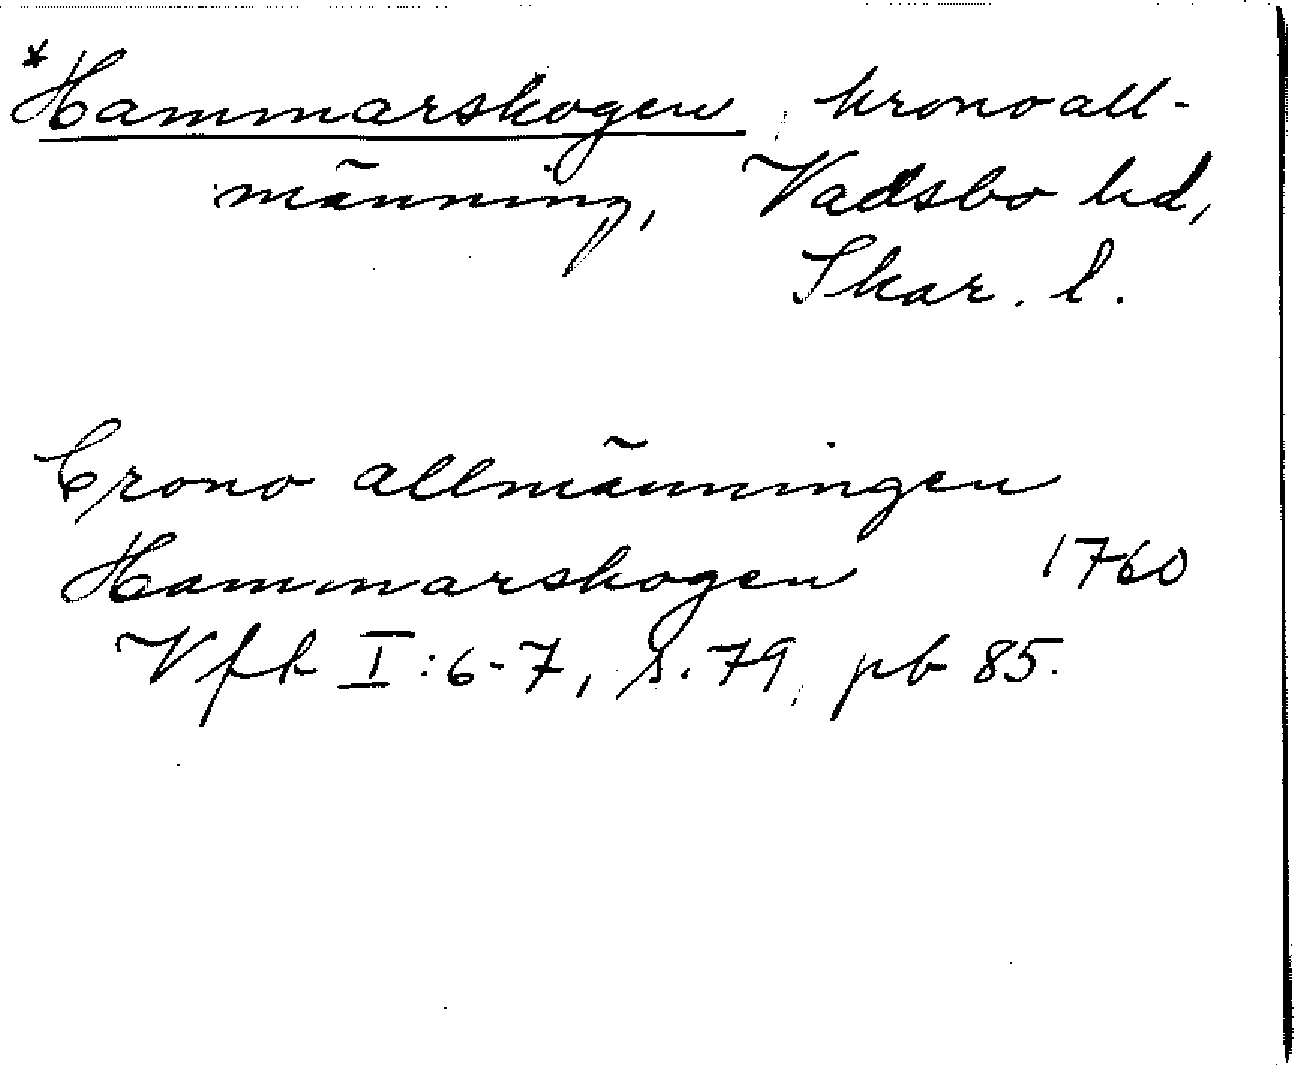 *Hammarskogen, kronoall-
männing, Vadsbo hd,
Skar. l.
Crono allmänningen
Hammarskogen 1760
Vft I:6-7, s. 79, pb 85.